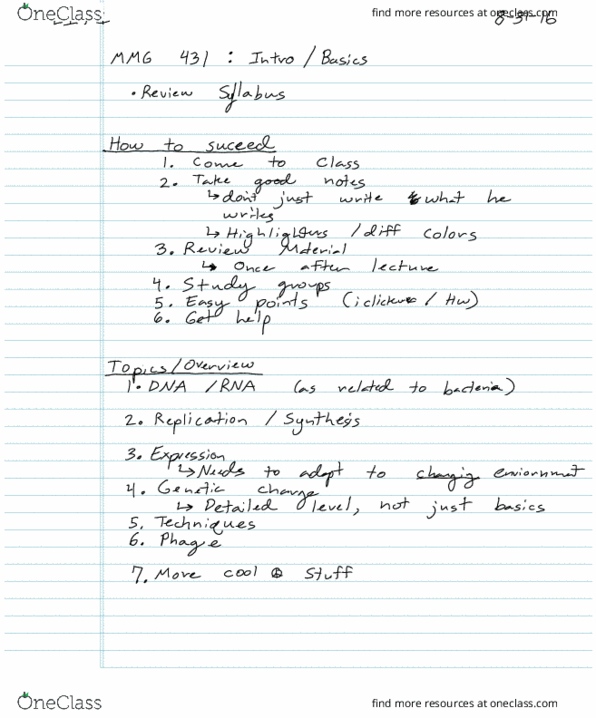 OneClass
find more resources at oneclass.com
8-31-16
MMG 431 : Intro / Basics
• Review Syllabus
How to suceed
1. Come to Class
2. Take good notes
↳ don't just write what he
writes
↳ Highlighters / diff colors
3. Review Material
↳ Once after lecture
4. Study groups
5. Easy points (iclicker / Hw)
6. Get help
Topics/Overview
1. DNA / RNA (as related to bacteria)
2. Replication / Synthesis
3. Expression
↳ Needs to adapt to changig enviornment
4. Genetic change
↳ Detailed level, not just basics
5. Techniques
6. Phage
7. More cool stuff
OneClass
find more resources at oneclass.com